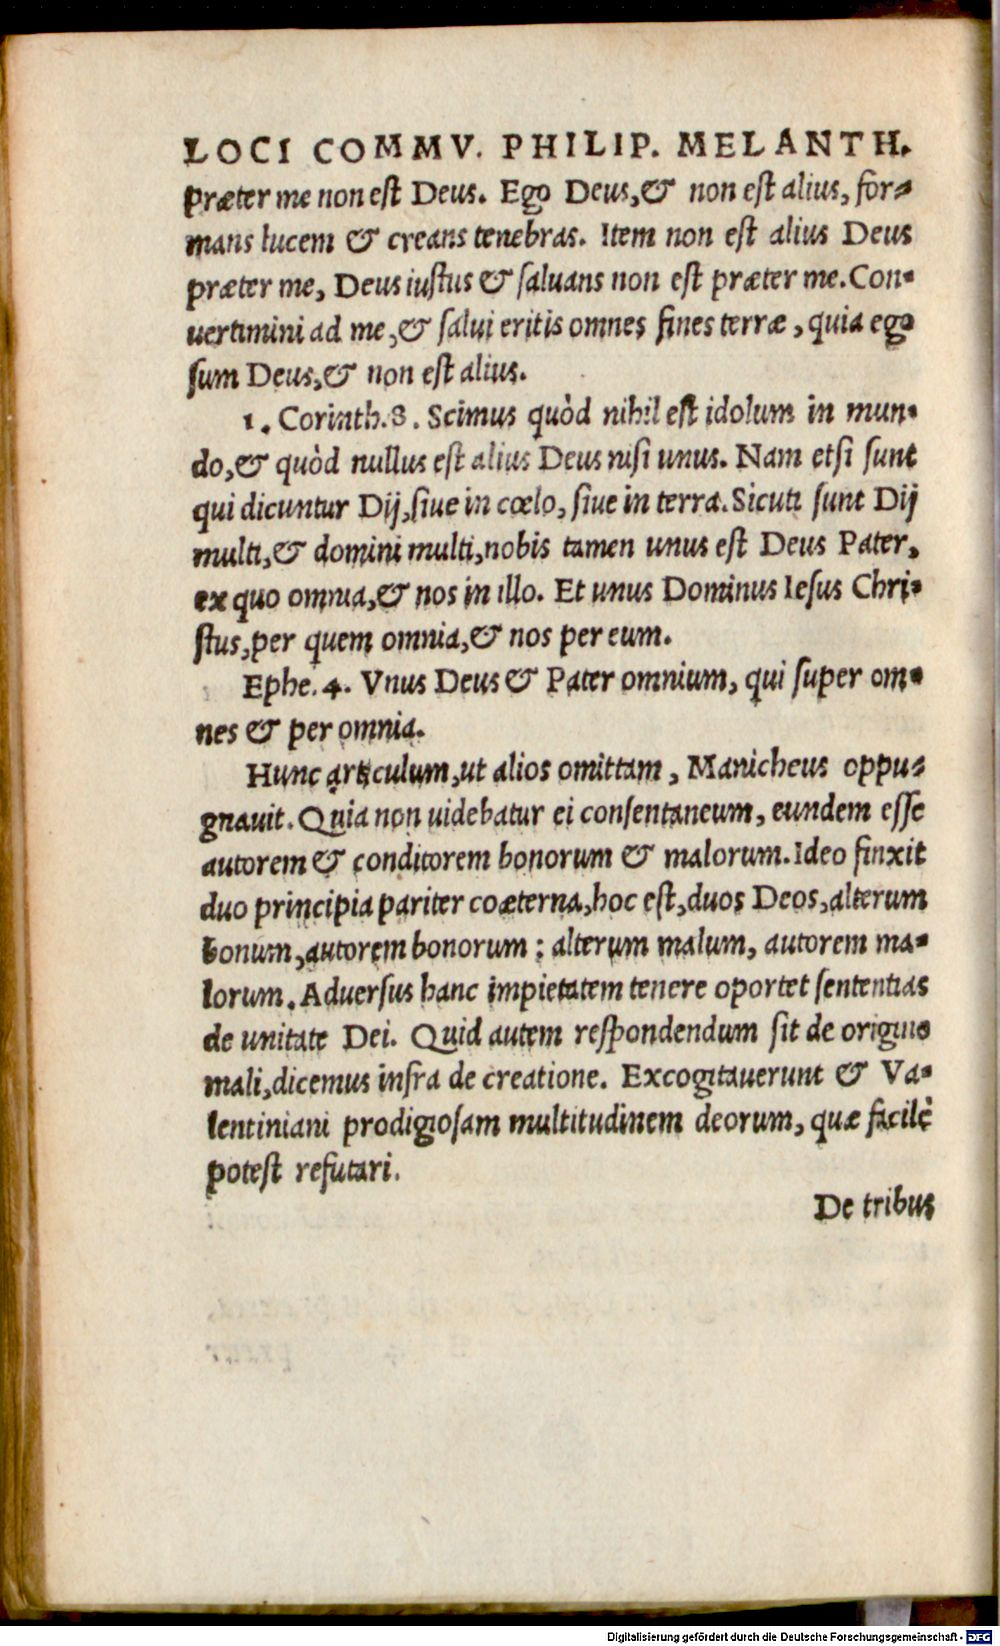 LOCI COMMV. PHILIP. MELANTH.
præter me non est Deus. Ego Deus,& non est alius, for-
mans lucem & creans tenebras. Item non est alius Deus
præter me, Deus iustus & saluans non est præter me. Con-
uertimini ad me,& salui eritis omnes fines terræ, quia ego
sum Deus,& non est alius.
1. Corinth.8. Scimus quòd nihil est idolum in mun-
do,& quòd nullus est alius Deus nisi unus. Nam etsi sunt
qui dicuntur Dij,siue in cœlo, siue in terra. Sicuti sunt Dij
multi,& domini multi,nobis tamen unus est Deus Pater,
ex quo omnia,& nos in illo. Et unus Dominus Iesus Chri-
stus,per quem omnia,& nos per eum.
Ephe.4. Vnus Deus & Pater omnium, qui super om-
nes & per omnia.
Hunc articulum,ut alios omittam, Manicheus oppu-
gnauit. Quia non uidebatur ei consentaneum, eundem esse
autorem & conditorem bonorum & malorum. Ideo finxit
duo principia pariter coæterna,hoc est,duos Deos,alterum
bonum,autorem bonorum: alterum malum, autorem ma-
lorum. Aduersus hanc impietatem tenere oportet sententias
de unitate Dei. Quid autem respondendum sit de origine
mali,dicemus infra de creatione. Excogitauerunt & Va-
lentiniani prodigiosam multitudinem deorum, quæ facilè
potest refutari.
De tribus
Digitalisierung gefördert durch die Deutsche Forschungsgemeinschaft - DFG